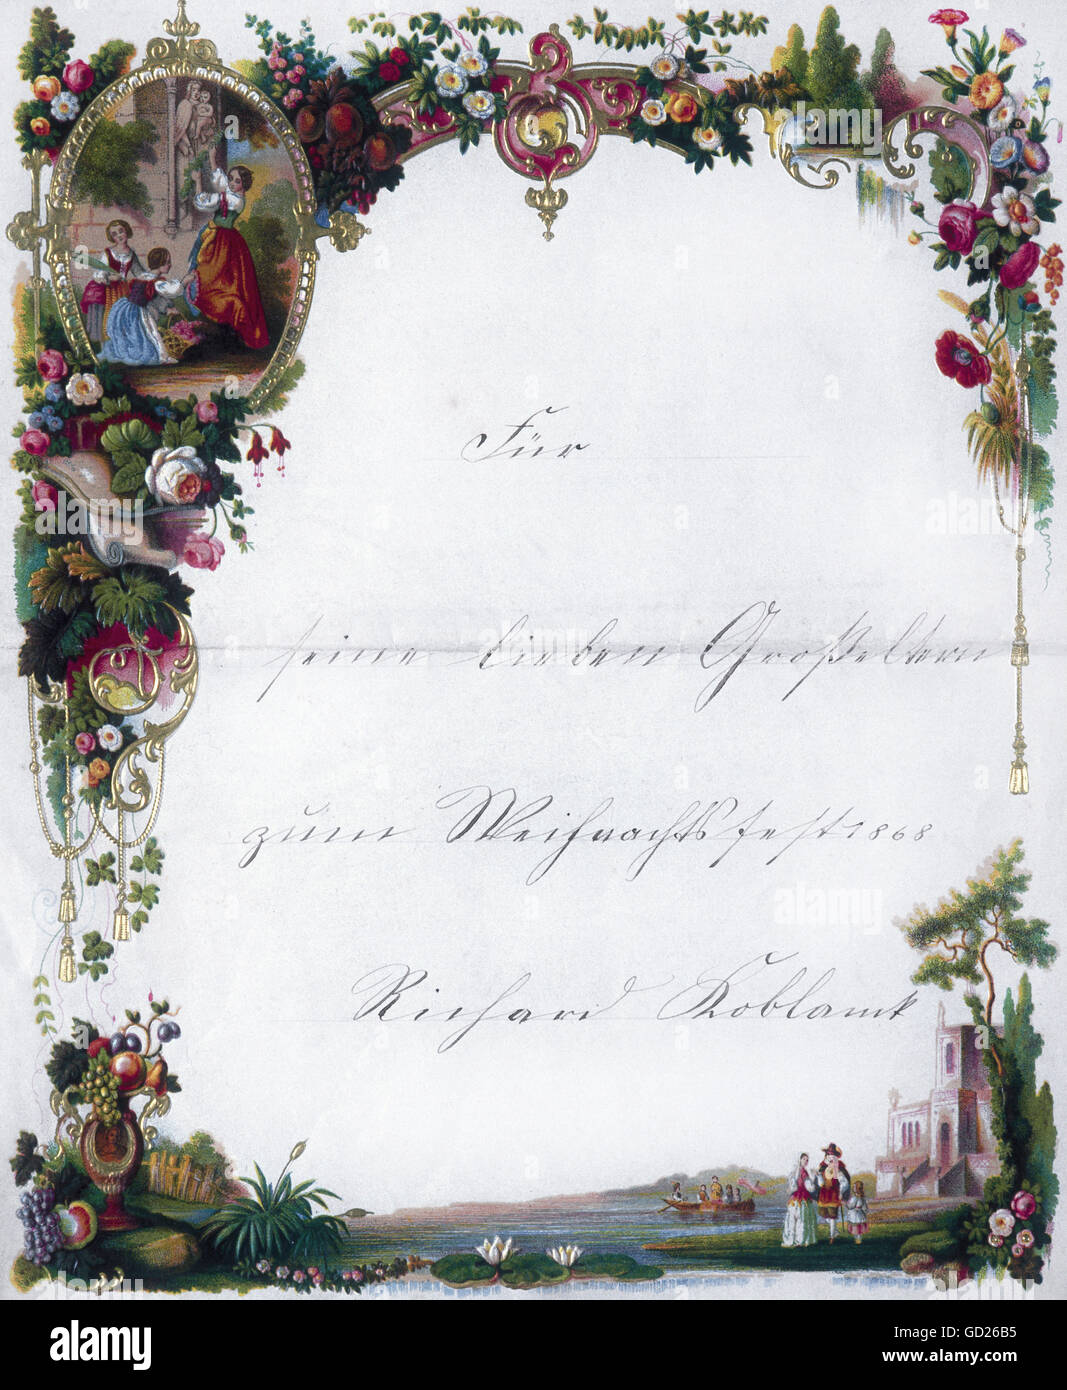 Für
seine lieben Großeltern
zum Weihnachtsfest 1868
Richard Koblank
alamy
alamy
a
a
alamy
Image ID: GD26B5
www.alamy.com